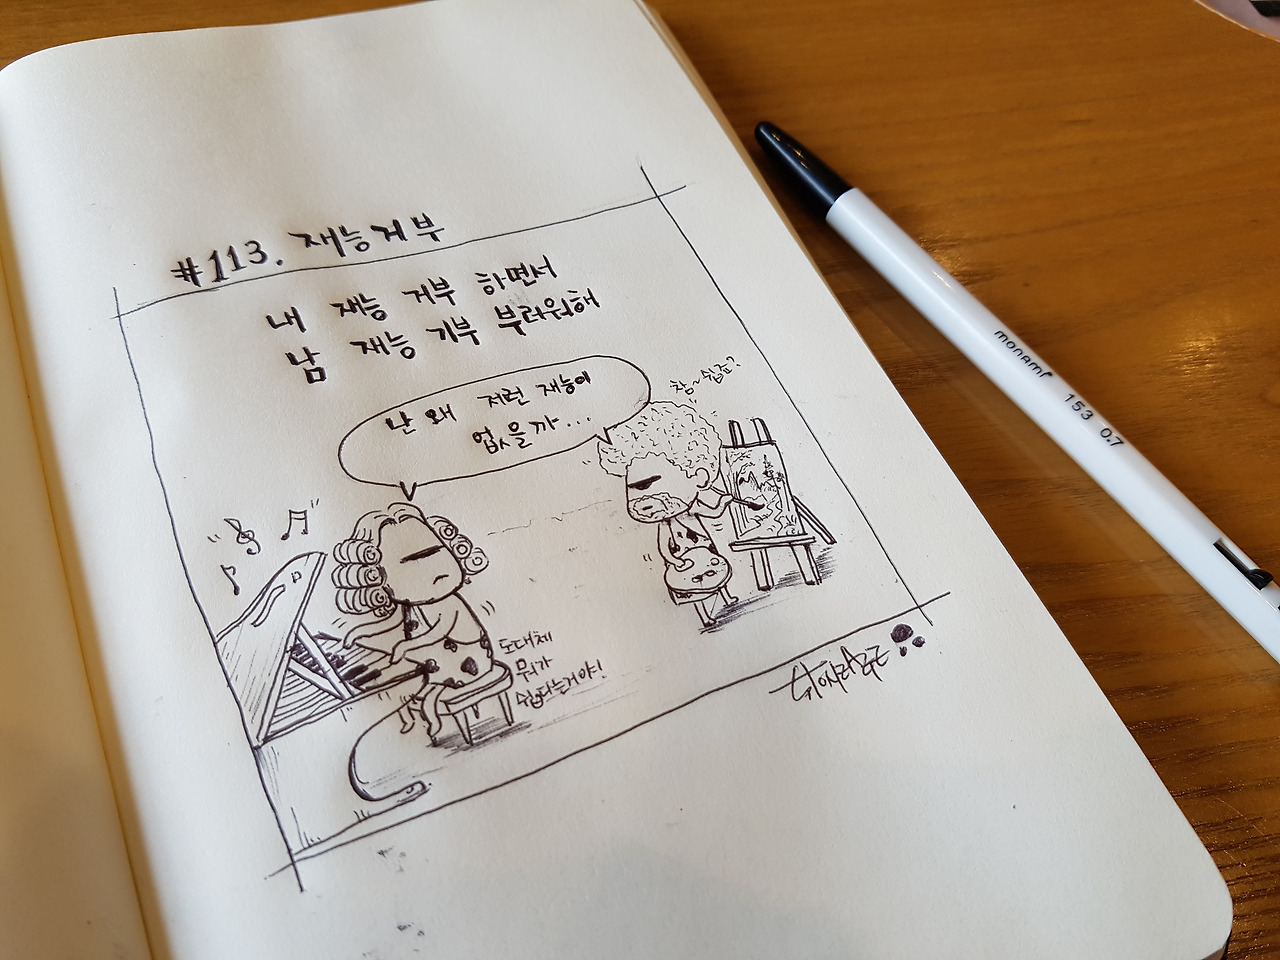 #113. 재능거부
내 재능 거부 하면서
남 재능 기부 부러워해
난 왜 저런 재능이
없을까...
참~ 쉽죠?
도대체
뭐가
쉽다는거야!
monami 153 0.7